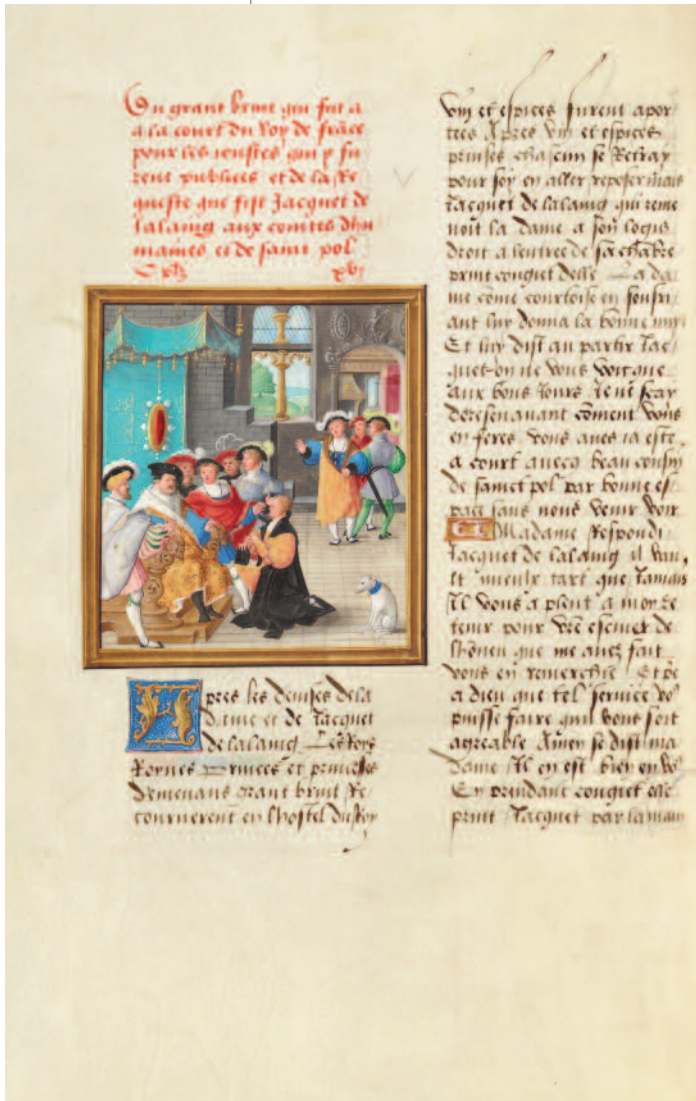 Du grant bruit qui fut a
a la court du Roy de frāce
pour les ioustes qui y fu
rent publiees et de la Re
queste que fist Jacquet de
lalaing aux comtes dhu
maines et de saint pol
xvi
Apres les deuises de la
dame et de Jacquet
de lalaing Les Roys
Roynes Princes et princesses
demenans grant bruit Re
tournerent en lhostel du Roy
vin et espices furent apor
tees Apres vin et espices
prinses chascun se Retray
pour soy en aller reposer mais
Jacquet de lalaing qui reme
noit la dame a son logis
droit a lentree de sa chābre
print congiet delle La da
me cōme courtoise en soubzri
ant luy donna la bonne nuyt
Et luy dist au partir Jac
quet on ne vous voit que
aux bons Jours Je ne scay
doresenauant cōment vous
en feres vous aues ia este
a court auecq beau cousin
de sainct pol par bonne es
pace sans nous venir voir
Madame Respondi
Jacquet de lalaing il vau
lt mieulx tart que Jamais
Il vous a pleut a moy re
tenir pour vr̄e escuier de
lhōneur que me auez fait
vous en remerchie Et pe
a dieu que tel seruice vo
puisse faire qui vous soit
agreable Amen se dist ma
dame Il en est bien en vo
En prendant congiet elle
print Jacquet par la main